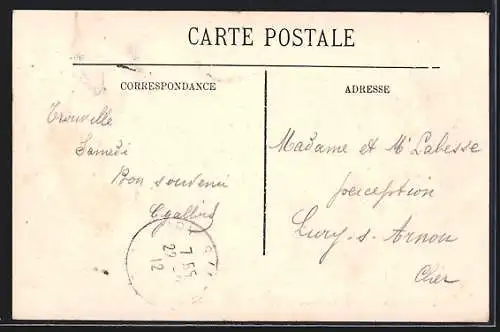 CARTE POSTALE
CORRESPONDANCE
ADRESSE
Trouville
Samedi
Bon souvenir
Madame et Mr Labesse
perception
Lury-s-Arnon
Cher
7 55
29
12